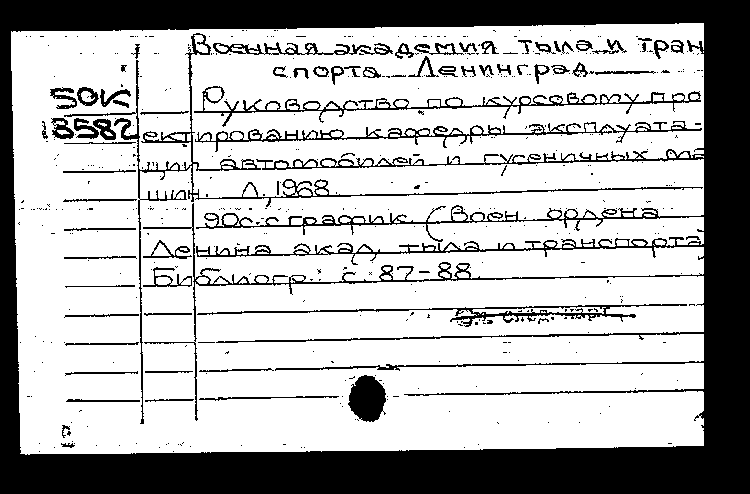 Военная академия тыла и тран
спорта Ленинград
50К Руководство по курсовому про
18582 ектированию кафедры эксплуата-
ции автомобилей и гусеничных ма
шин. Л, 1968.
90с. с график. (Воен. ордена
Ленина акад. тыла и транспорта
Библиогр.: с. 87-88.
См. след. карт.